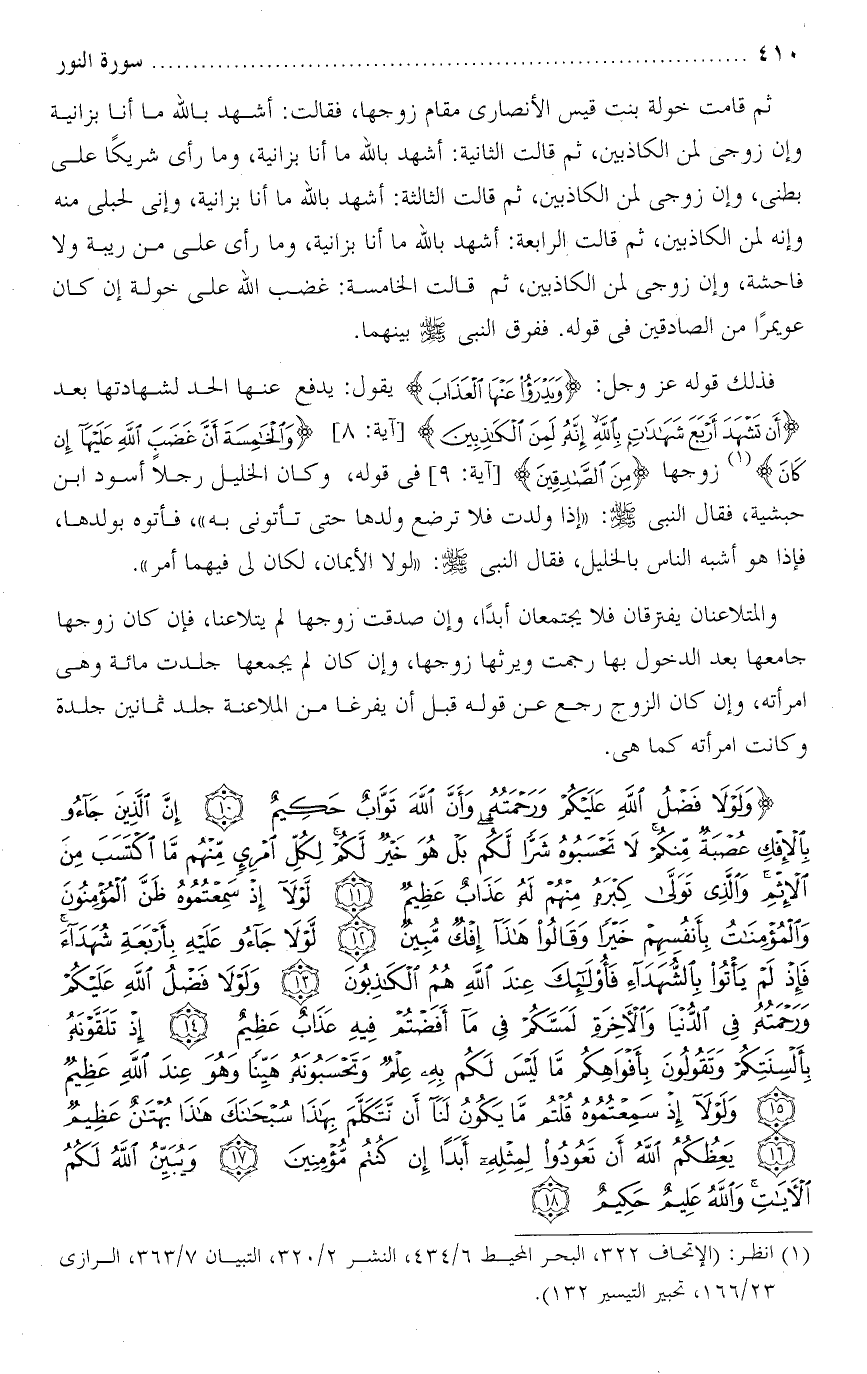 ٤١٠ ........................................................................ سورة النور
ثم قامت خولة بنت قيس الأنصارى مقام زوجها، فقالت: أشهد بالله ما أنا بزانية
وإن زوجى لمن الكاذبين، ثم قالت الثانية: أشهد بالله ما أنا بزانية، وما رأى شريكًا على
بطنى، وإن زوجى لمن الكاذبين، ثم قالت الثالثة: أشهد بالله ما أنا بزانية، وإنى لحبلى منه
وإنه لمن الكاذبين، ثم قالت الرابعة: أشهد بالله ما أنا بزانية، وما رأى على من ريبة ولا
فاحشة، وإن زوجى لمن الكاذبين، ثم قالت الخامسة: غضب الله على خولة إن كان
عويمرًا من الصادقين فى قوله. ففرق النبى ﷺ بينهما.
فذلك قوله عز وجل: ﴿وَيَدْرَؤُاْ عَنْهَا الْعَذَابَ﴾ يقول: يدفع عنها الحد لشهادتها بعد
﴿أَن تَشْهَدَ أَرْبَعَ شَهَادَاتٍ بِاللَّهِ إِنَّهُ لَمِنَ الْكَاذِبِينَ﴾ [آية: ٨] ﴿وَالْخَامِسَةَ أَنَّ غَضَبَ اللَّهِ عَلَيْهَا إِن
كَانَ﴾(١) زوجها ﴿مِنَ الصَّادِقِينَ﴾ [آية: ٩] فى قوله، وكان الخليل رجلاً أسود ابن
حبشية، فقال النبى ﷺ: «إذا ولدت فلا ترضع ولدها حتى تأتونى به»، فأتوه بولدها،
فإذا هو أشبه الناس بالخليل، فقال النبى ﷺ: «لولا الأيمان، لكان لى فيهما أمر».
والمتلاعنان يفترقان فلا يجتمعان أبدًا، وإن صدقت زوجها لم يتلاعنا، فإن كان زوجها
جامعها بعد الدخول بها رجمت ويرثها زوجها، وإن كان لم يجمعها جلدت مائة وهى
امرأته، وإن كان الزوج رجع عن قوله قبل أن يفرغا من الملاعنة جلد ثمانين جلدة
وكانت امرأته كما هى.
﴿وَلَوْلَا فَضْلُ اللَّهِ عَلَيْكُمْ وَرَحْمَتُهُ وَأَنَّ اللَّهَ تَوَّابٌ حَكِيمٌ ١٠ إِنَّ الَّذِينَ جَاءُو
بِالْإِفْكِ عُصْبَةٌ مِّنكُمْ لَا تَحْسَبُوهُ شَرًّا لَّكُم بَلْ هُوَ خَيْرٌ لَّكُمْ لِكُلِّ امْرِئٍ مِّنْهُم مَّا اكْتَسَبَ مِنَ
الْإِثْمِ وَالَّذِى تَوَلَّى كِبْرَهُ مِنْهُمْ لَهُ عَذَابٌ عَظِيمٌ ١١ لَّوْلَا إِذْ سَمِعْتُمُوهُ ظَنَّ الْمُؤْمِنُونَ
وَالْمُؤْمِنَاتُ بِأَنفُسِهِمْ خَيْرًا وَقَالُوا هَذَا إِفْكٌ مُّبِينٌ ١٢ لَّوْلَا جَاءُو عَلَيْهِ بِأَرْبَعَةِ شُهَدَاءَ
فَإِذْ لَمْ يَأْتُوا بِالشُّهَدَاءِ فَأُوْلَئِكَ عِندَ اللَّهِ هُمُ الْكَاذِبُونَ ١٣ وَلَوْلَا فَضْلُ اللَّهِ عَلَيْكُمْ
وَرَحْمَتُهُ فِى الدُّنْيَا وَالْآخِرَةِ لَمَسَّكُمْ فِى مَا أَفَضْتُمْ فِيهِ عَذَابٌ عَظِيمٌ ١٤ إِذْ تَلَقَّوْنَهُ
بِأَلْسِنَتِكُمْ وَتَقُولُونَ بِأَفْوَاهِكُم مَّا لَيْسَ لَكُم بِهِ عِلْمٌ وَتَحْسَبُونَهُ هَيِّنًا وَهُوَ عِندَ اللَّهِ عَظِيمٌ
١٥ وَلَوْلَا إِذْ سَمِعْتُمُوهُ قُلْتُم مَّا يَكُونُ لَنَا أَن نَّتَكَلَّمَ بِهَذَا سُبْحَانَكَ هَذَا بُهْتَانٌ عَظِيمٌ
١٦ يَعِظُكُمُ اللَّهُ أَن تَعُودُوا لِمِثْلِهِ أَبَدًا إِن كُنتُم مُّؤْمِنِينَ ١٧ وَيُبَيِّنُ اللَّهُ لَكُمُ
الْآيَاتِ وَاللَّهُ عَلِيمٌ حَكِيمٌ ١٨
(١) انظر: (الإتحاف ٣٢٢، البحر المحيط ٤٣٤/٦، النشر ٣٢٠/٢، التبيان ٣٦٣/٧، الرازى
١٦٦/٢٣، تحبير التيسير ١٣٢).